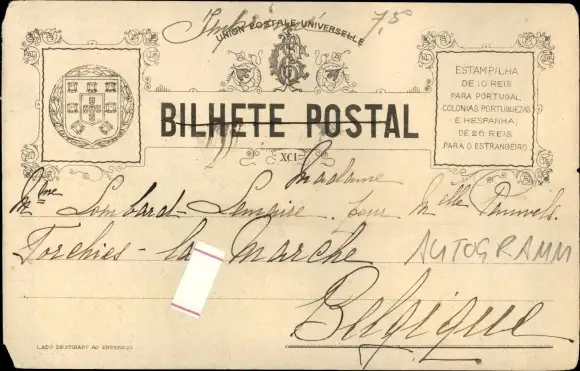 Imprimé 7,5
UNION POSTALE UNIVERSELLE
BILHETE POSTAL
ESTAMPILHA
DE 10 REIS
PARA PORTUGAL,
COLONIAS PORTUGUEZAS
E HESPANHA,
DE 25 REIS
PARA O ESTRANGEIRO
XCI
Madame
Mme Lombard-Lemaire. pour Mlle
Forchies-la Marche
AUTOGRAMM
Belgique
LADO DESTINADO AO ENDEREÇO